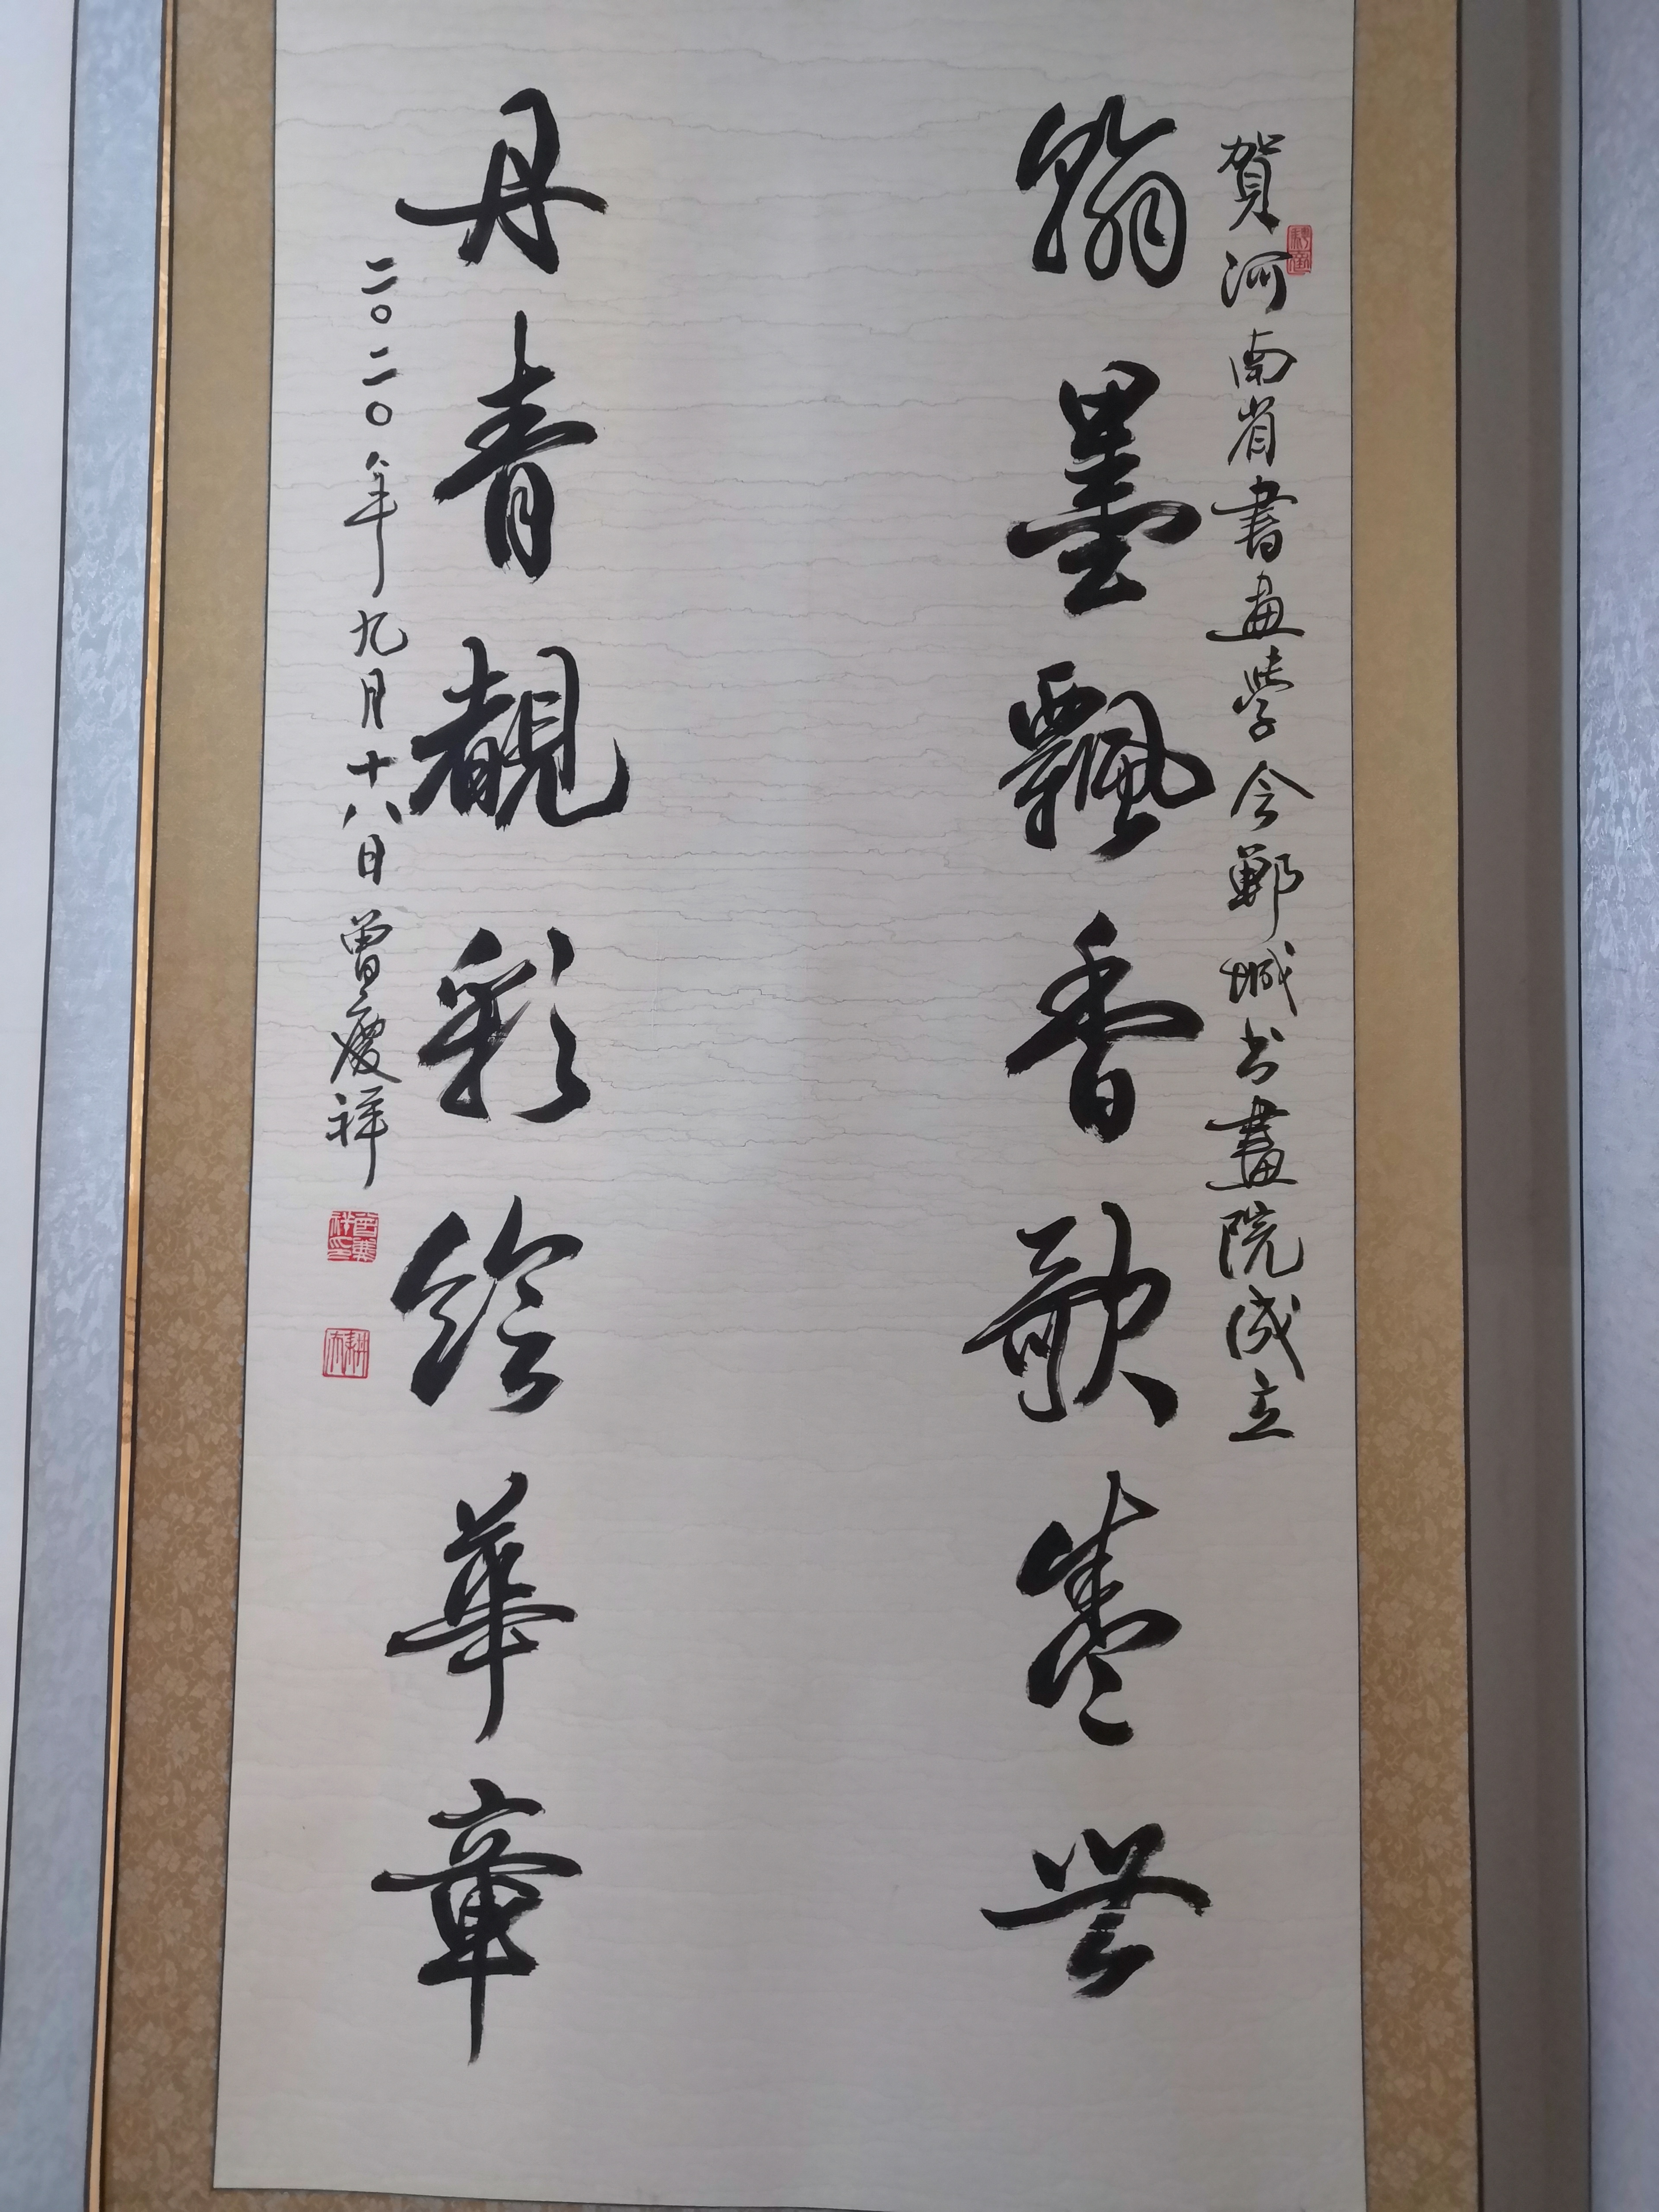 賀河南省書画學会鄲城书畫院成立
翰墨飄香歌盛世
丹青靚彩绘華章
二〇二〇年九月十八日曾慶祥
曾慶祥印